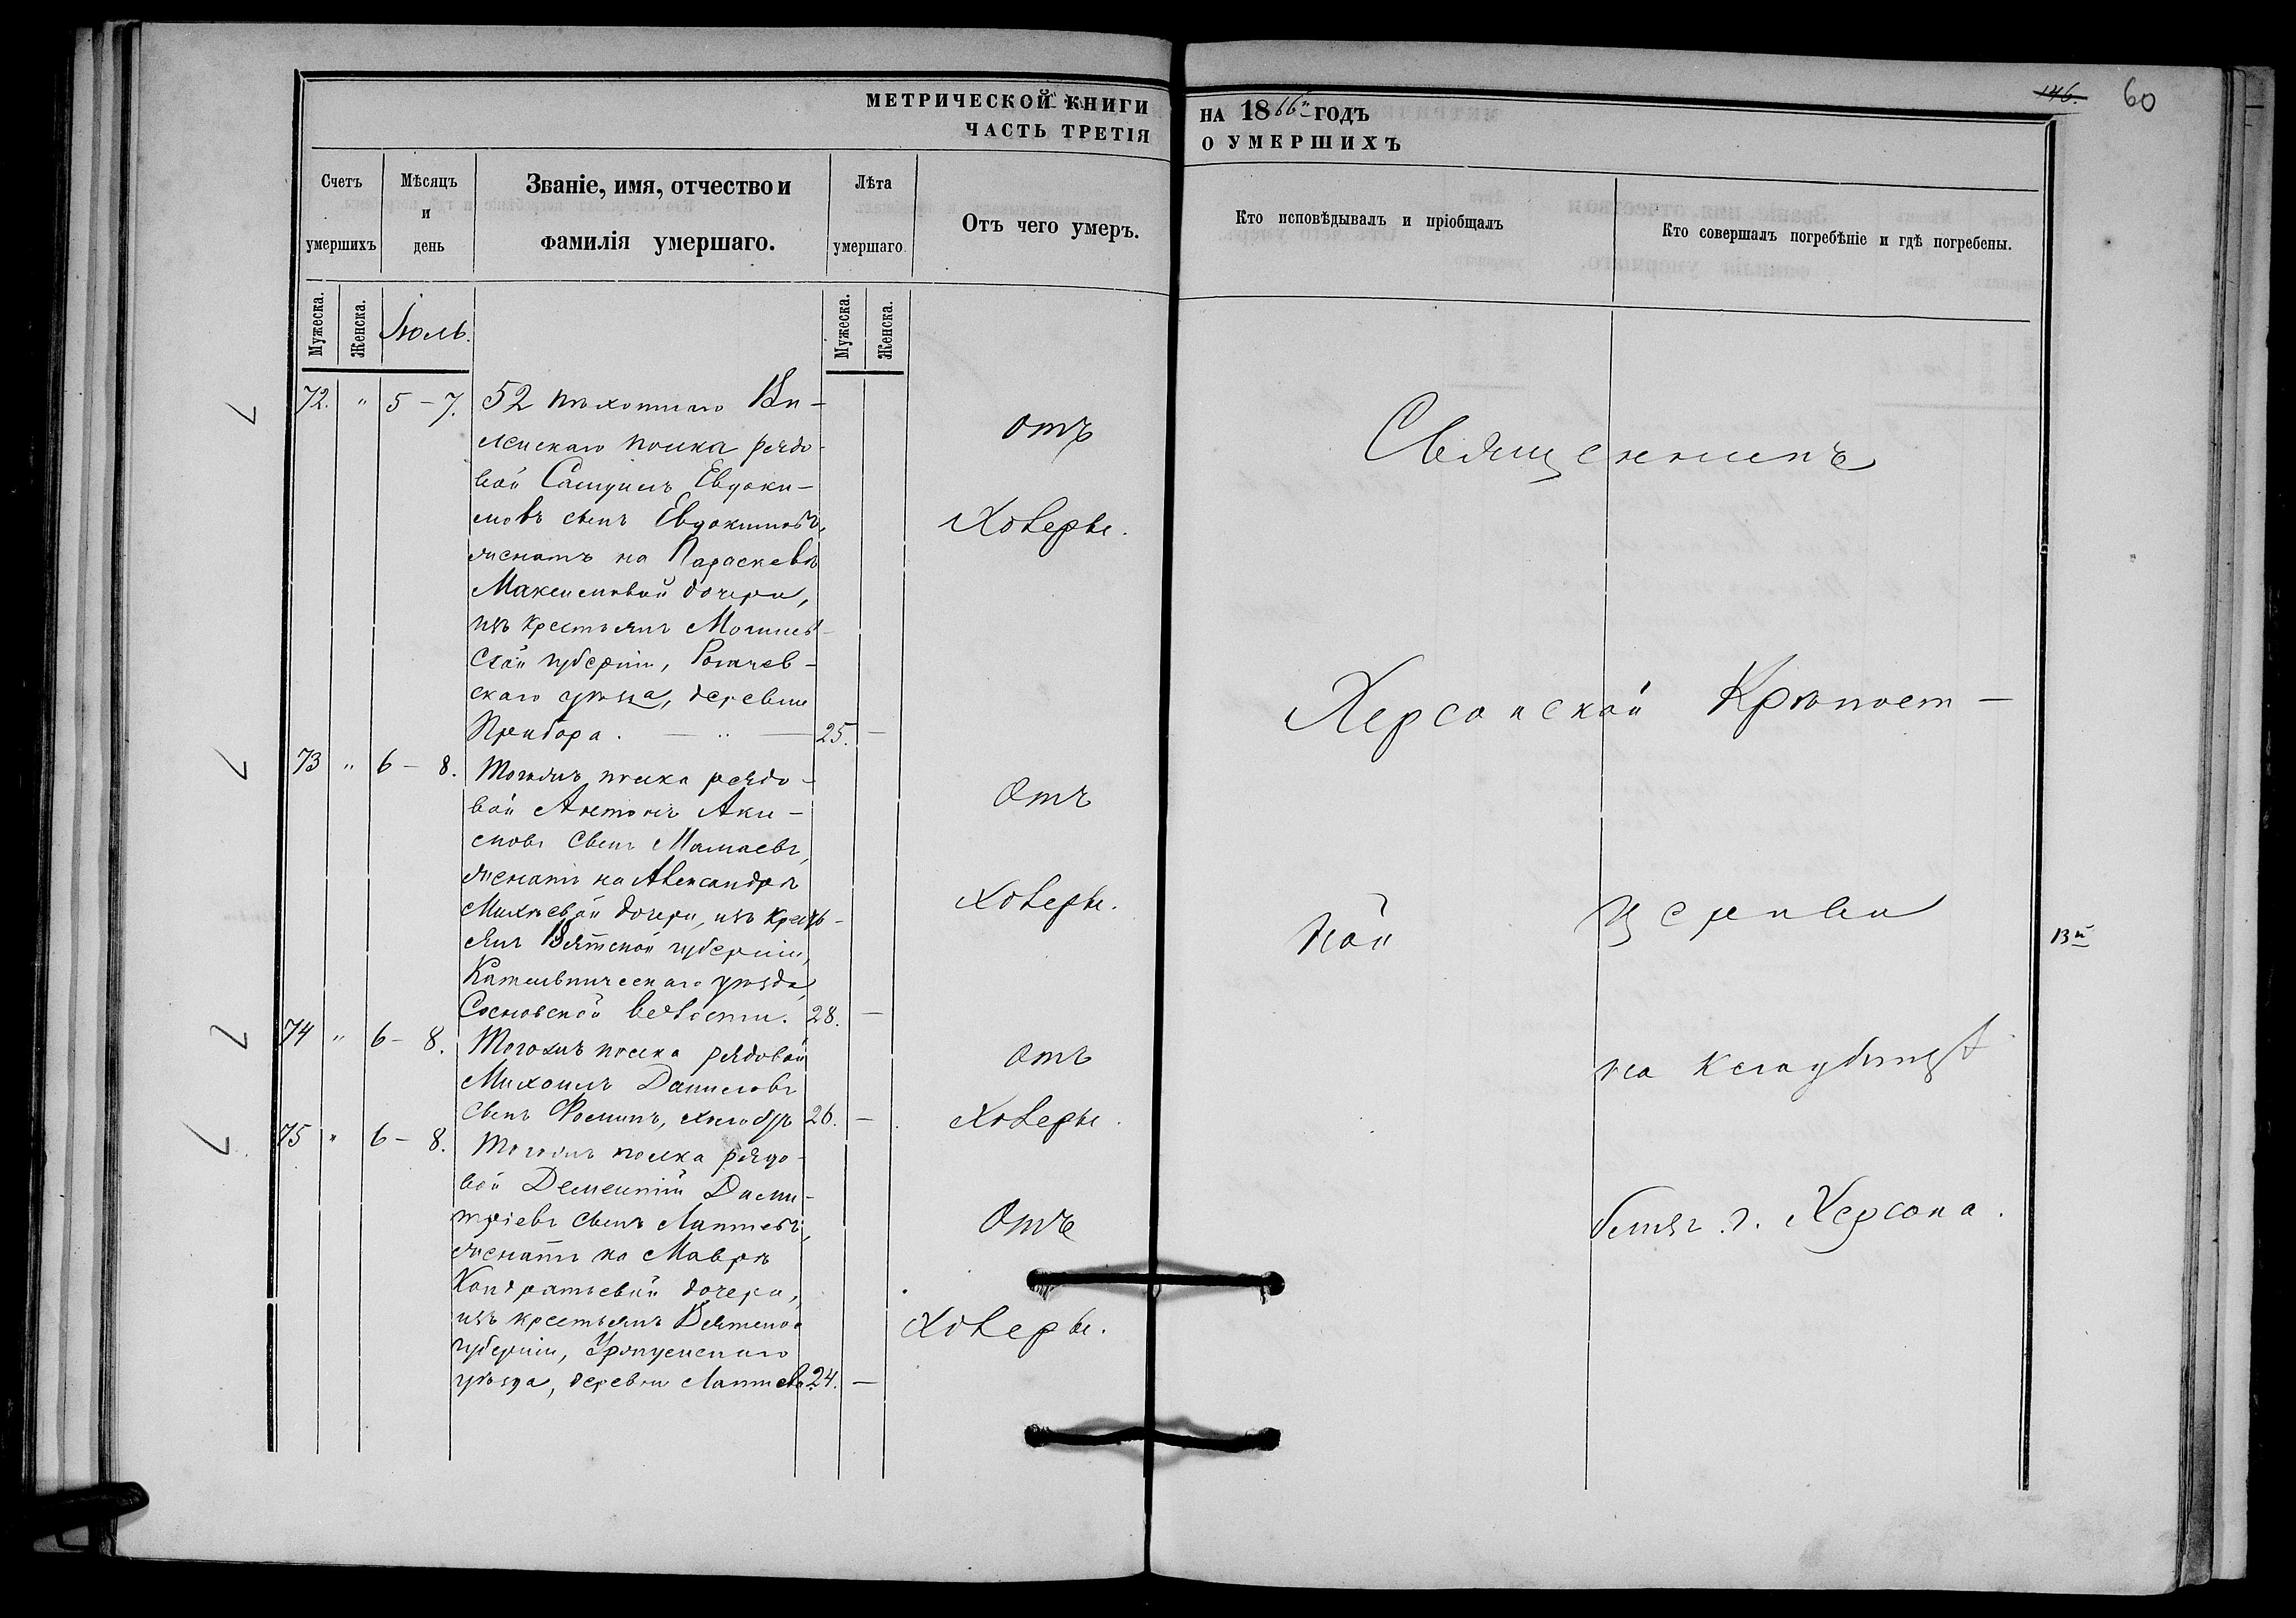 146. 60
МЕТРИЧЕСКОЙ КНИГИ НА 1866й ГОДЪ
ЧАСТЬ ТРЕТІЯ О УМЕРШИХЪ
Счетъ умершихъ
Мѣсяцъ и день
Званіе, имя, отчество и фамилія умершаго.
Лѣта умершаго
Отъ чего умеръ.
Кто исповѣдывалъ и пріобщалъ
Кто совершалъ погребѣніе и гдѣ погребены.
Мужеска. Женска. Іюль. Мужеска. Женска.
72. " 5 – 7. 52 пѣхотнаго Ви-
ленскаго полка рядо-
вой Самуилъ Евдоки-
мовъ сынъ Евдокимовъ,
женатъ на Параскевѣ
Максимовой дочери,
изъ крестьянъ Могилев-
ской губерніи, Рогачев-
скаго уѣзда, деревни
Прибора. 25. –
отъ
Холеры.
73 " 6 – 8. Тогожъ полка рядо-
вой Антонъ Аки-
мовъ сынъ Мамаевъ,
женатъ на Александрѣ
Михѣевой дочери, изъ кресть-
янъ Вятской губерніи,
Котельническаго уѣзда,
Сосновской волости. 28. –
Отъ
Холеры.
74 " 6 – 8. Тогожъ полка рядовой
Михаилъ Даниловъ
сынъ Фоминъ, холостъ 26. –
Отъ
Холеры.
75 " 6 – 8. Тогожъ полка рядо-
вой Дементій Дими-
тріевъ сынъ Лаптевъ,
женатъ на Маврѣ
Кондратьевой дочери,
изъ крестьянъ Вятской
губерніи,
уѣзда, деревни 24. –
Отъ
Холеры.
Священникъ
Херсонской Крѣпост-
ной церкви
на кладбищѣ
близъ г. Херсона.